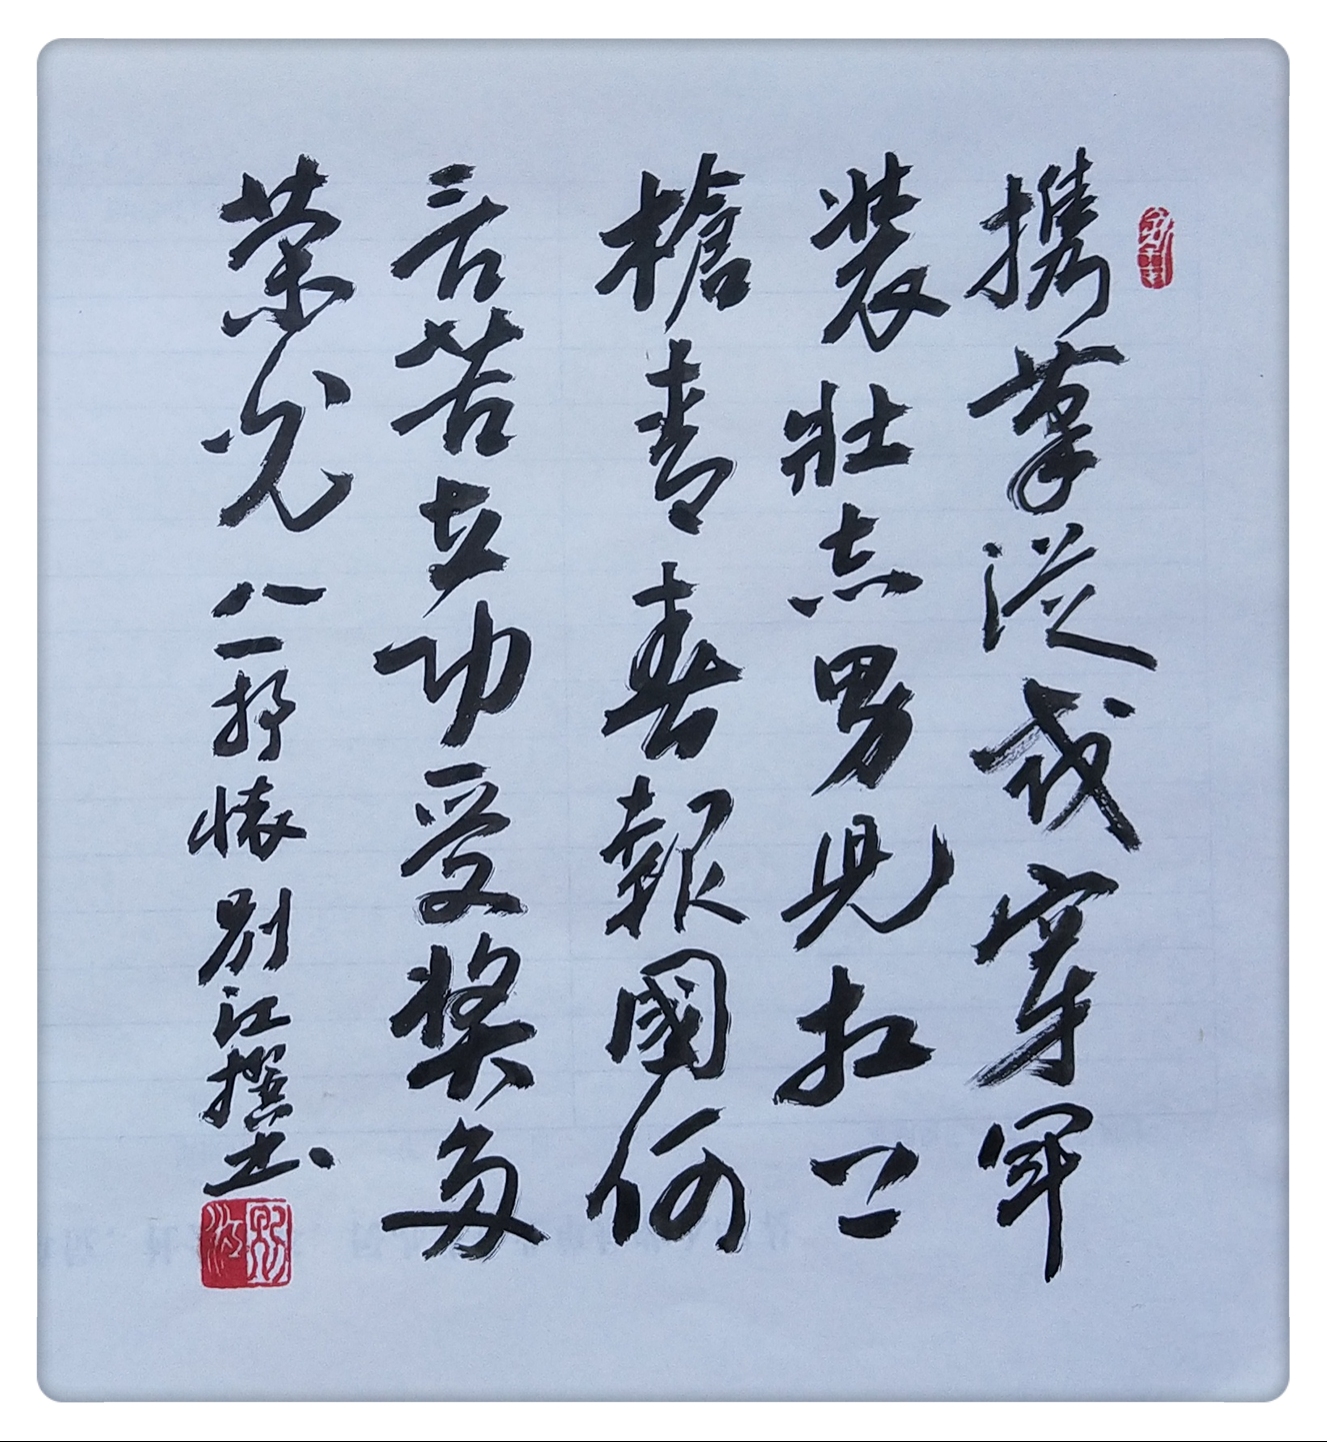 携筆從戎穿軍
裝壯志男兒扛一
槍青春報國何
言苦立功受奖多
榮光
八一抒懷 别江撰书